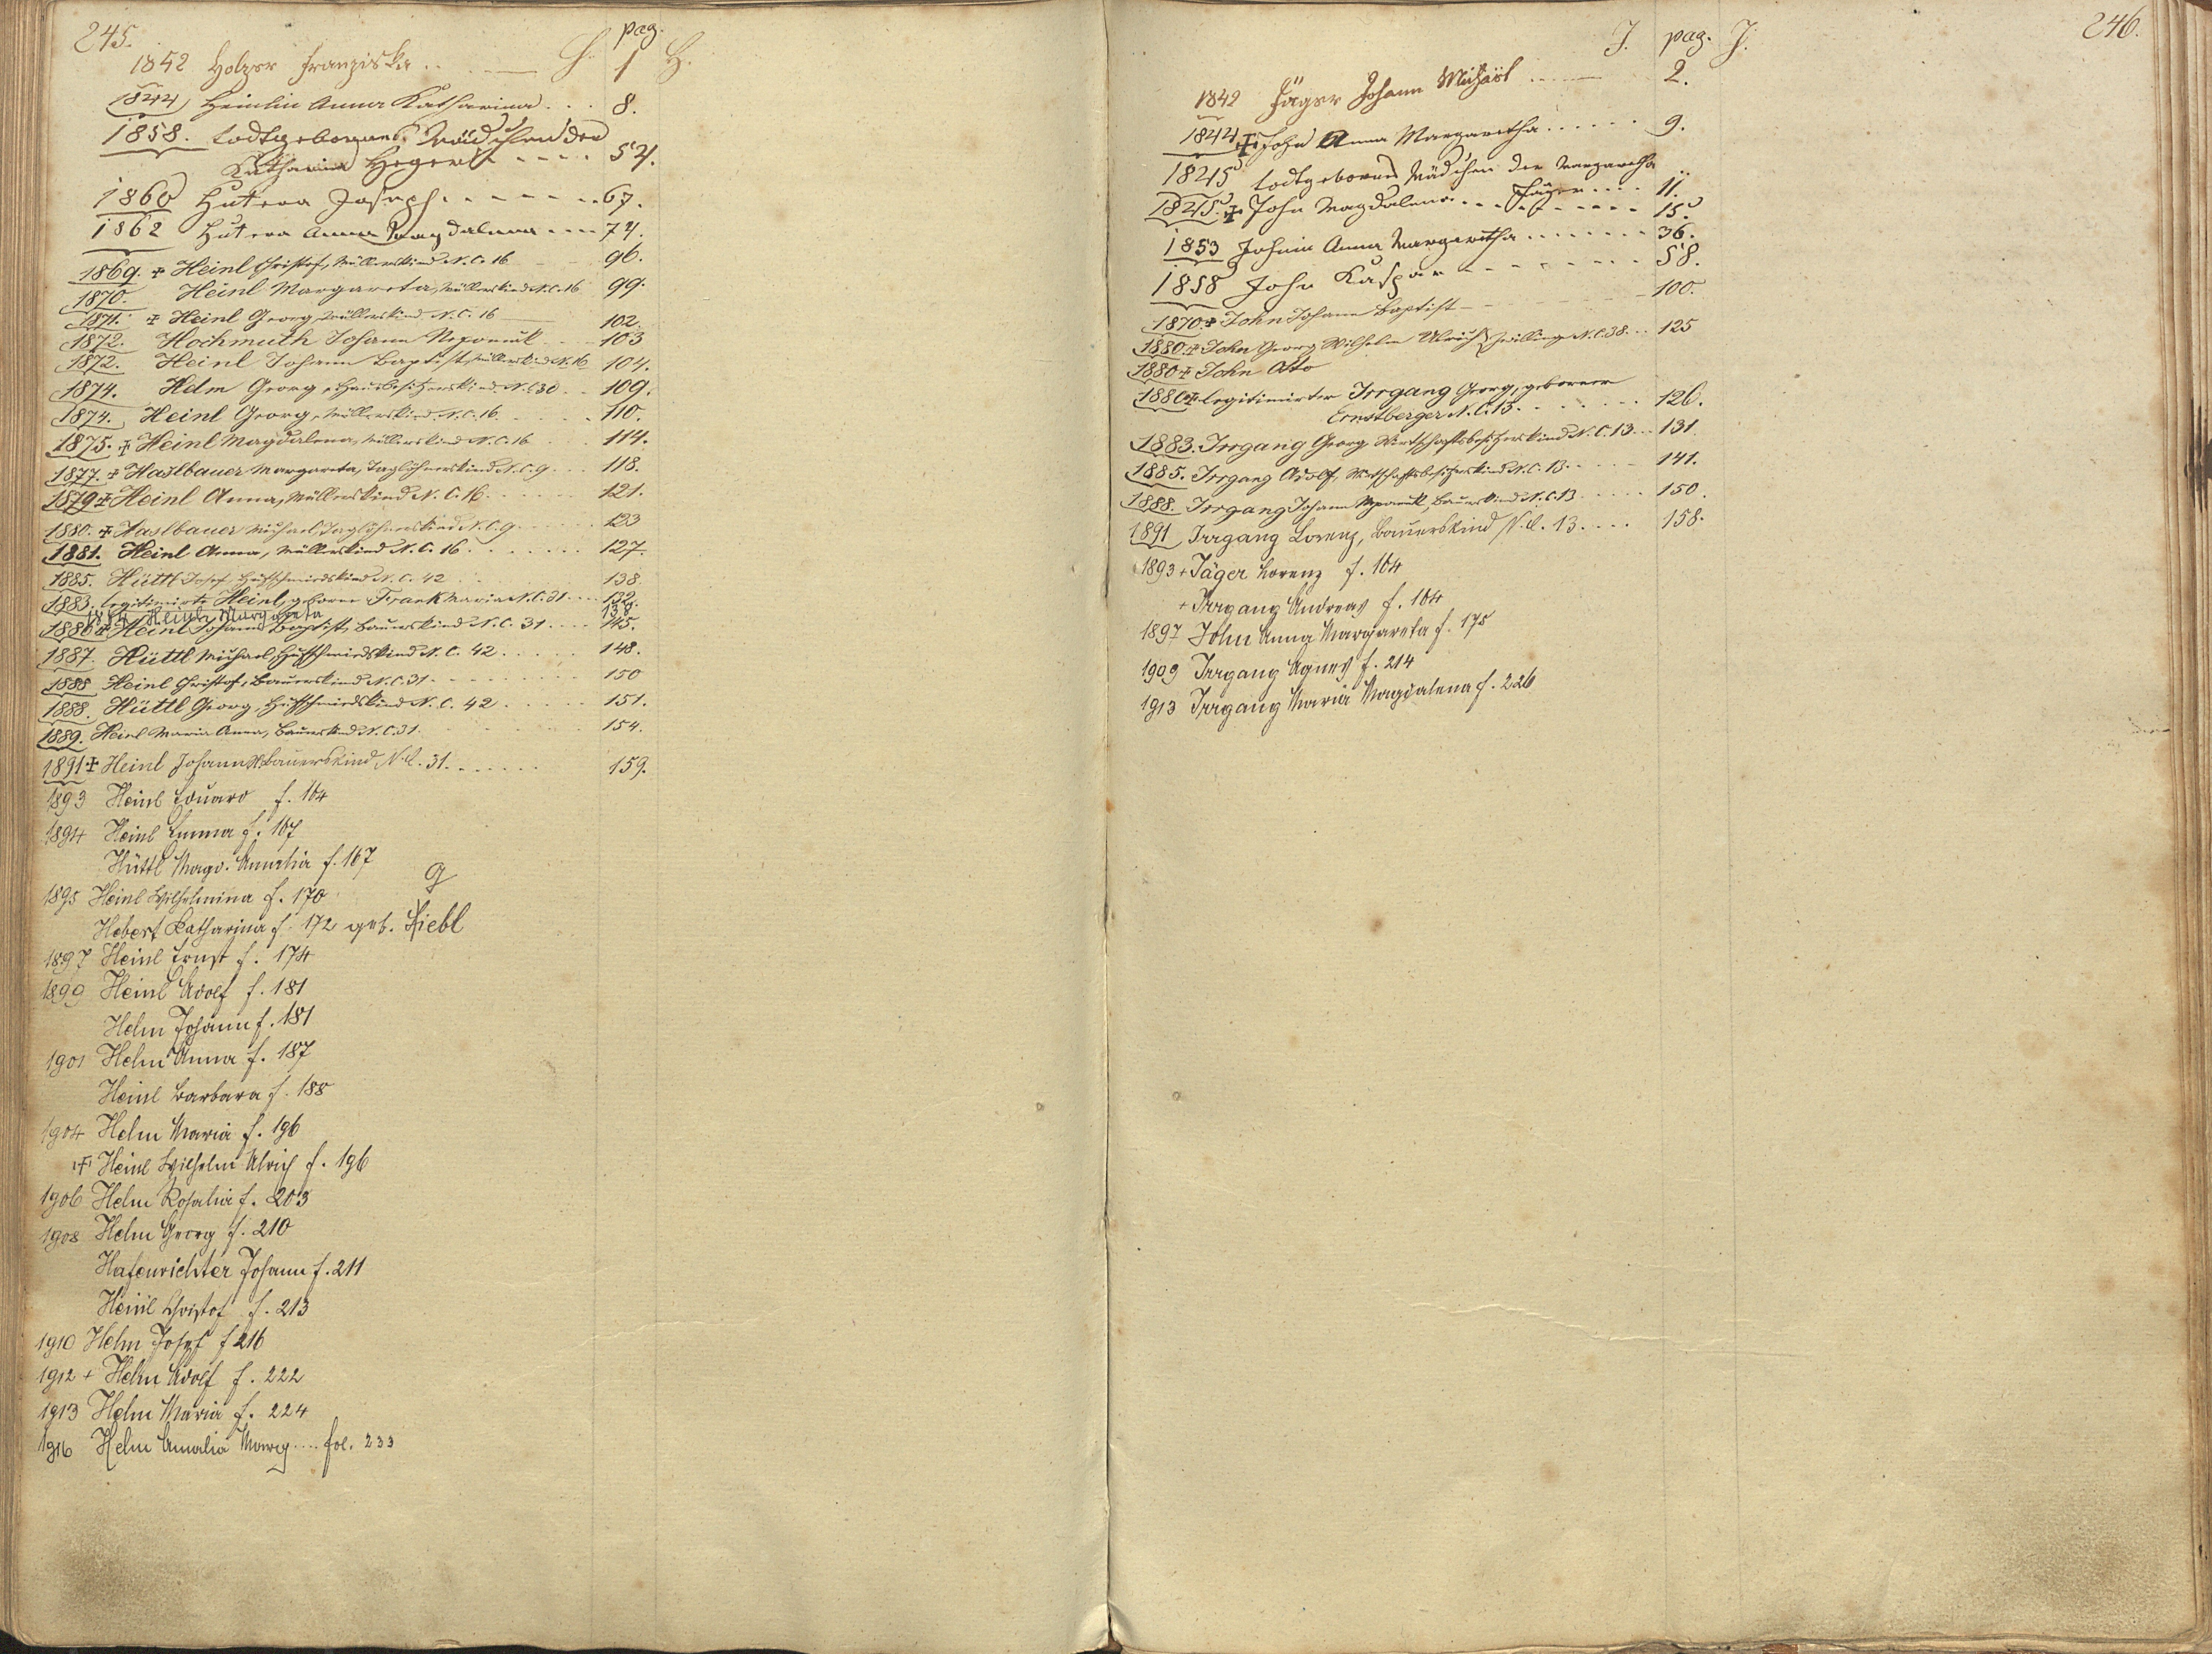 245.
pag.
1842 Holzer Franziska . . — H. 1 H.
1844, Heinlin Anna Katharina . . . 8.
1858. todtgebornes Mädchen der
Katharina Hegert - - - - 54.
1860 Hutera Joseph . - - - - . . 67.
1862 Hutera Anna Magdalena - - - 74.
1869. + Heinl Christof, Müllerskind N.C. 16 96.
1870. Heinl Margareta, Müllerskind N.C. 16 99.
1871. + Heinl Georg, Müllerskind N.C. 16 — 102.
1872. Hochmuth Johann Nepomuk 103
1872. Heinl Johann Baptist, Müllerskind N. 16 104.
1874. Helm Georg, Hausbesitzerskind N.C. 30 . . 109.
1874. Heinl Georg, Müllerskind N.C. 16. 110.
1875. + Heinl Magdalena, Müllerskind N.C. 16 . . . 114.
1877. + Haslbauer Margareta, Taglöhnerskind N.C. 9 . . . 118.
1879 + Heinl Anna, Müllerskind N.C. 16. . . . . . . 121.
1880. + Haslbauer Michael, Taglöhnerskind N.C. 9 . . . . . . 123
1881. Heinl Anna, Müllerskind N.C. 16 . . . . . . . . 127.
1885. Hüttl Josef Hufschmiedskind N.C. 42 138.
1883. legitimirte Heinl, geborne Frank Maria N.C. 31 . . . 132.
1884 Heinl Margareta 138.
1886 + Heinl Johann Baptist, Bauerskind N.C. 31 . . . . 145.
1887. Hüttl Michael, Hufschmiedskind N.C. 42 . . . . . 148.
1888 Heinl Christof, Bauerskind N.C. 31 . . . . . . . . 150
1888. Hüttl Georg, Hufschmiedskind N.C. 42 . . . . . 151.
1889. Heinl Maria Anna, Bauerskind N.C. 31. 154.
1891 + Heinl Johann N. Bauerskind N.C. 31. . . . . . . 159.
1893 Heinl Eduard f. 164
1894 Heinl Emma f. 167
Hüttl Magd. Amalia f. 167
1895 Heinl Wilhelmina f. 170
Hebert Katharina f. 172 geb. Liebl
1897 Heinl Ernst f. 174
1899 Heinl Adolf f. 181
Helm Johann f. 181
1901 Helm Anna f. 187
Heinl Barbara f. 188
1904 Helm Maria f. 196
+ Heinl Wilhelm Ulrich f. 196
1906 Helm Rosalia f. 203
1908 Helm Georg f. 210
Hafenrichter Johann f. 211
Heinl Christof f. 213
1910 Helm Josef f 216
1912 + Helm Adolf f. 222
1913 Helm Maria f. 224
1916 Helm Amalia .... fol. 233
246.
J. pag. J.
1842 Jäger Johann Michael . . . . — 2.
1844 + John Anna Margaretha . . . . . . 9.
1845 todtgebornes Mädchen der Margaretha
Jäger . . . . 11.
1845. + John Magdalena . . . . . . . . . 15.
1853 Johnin Anna Margaretha . . . . . . . . 36.
1858 John Kaspar - - - - - - - - 58.
1870 + John Johann Baptist - 100.
1880. + John Georg Wilhelm Ulrich } Zwillinge N.C. 38. . . 125
1880 + John Otto
1880 + legitimirter Irrgang Georg, geborner
Ernstberger N.C. 13. . . . . . . . 126.
1883. Irrgang Georg Wirtschaftsbesitzerskind N.C. 13 . . . 131.
1885. Irrgang Adolf, Wirtschaftsbesitzerskind N.C. 13. . . . . 141.
1888. Irrgang Johann Nepomuk, Bauerskind N.C. 13 . . . . . 150.
1891 Irrgang Lorenz, Bauerskind N.C. 13. . . . . 158.
1893 + Jäger Lorenz f. 164
+ Irrgang Andreas f. 164
1897 John Anna Margareta f. 175
1909 Irrgang Agnes f. 214
1913 Irrgang Maria Magdalena f. 226